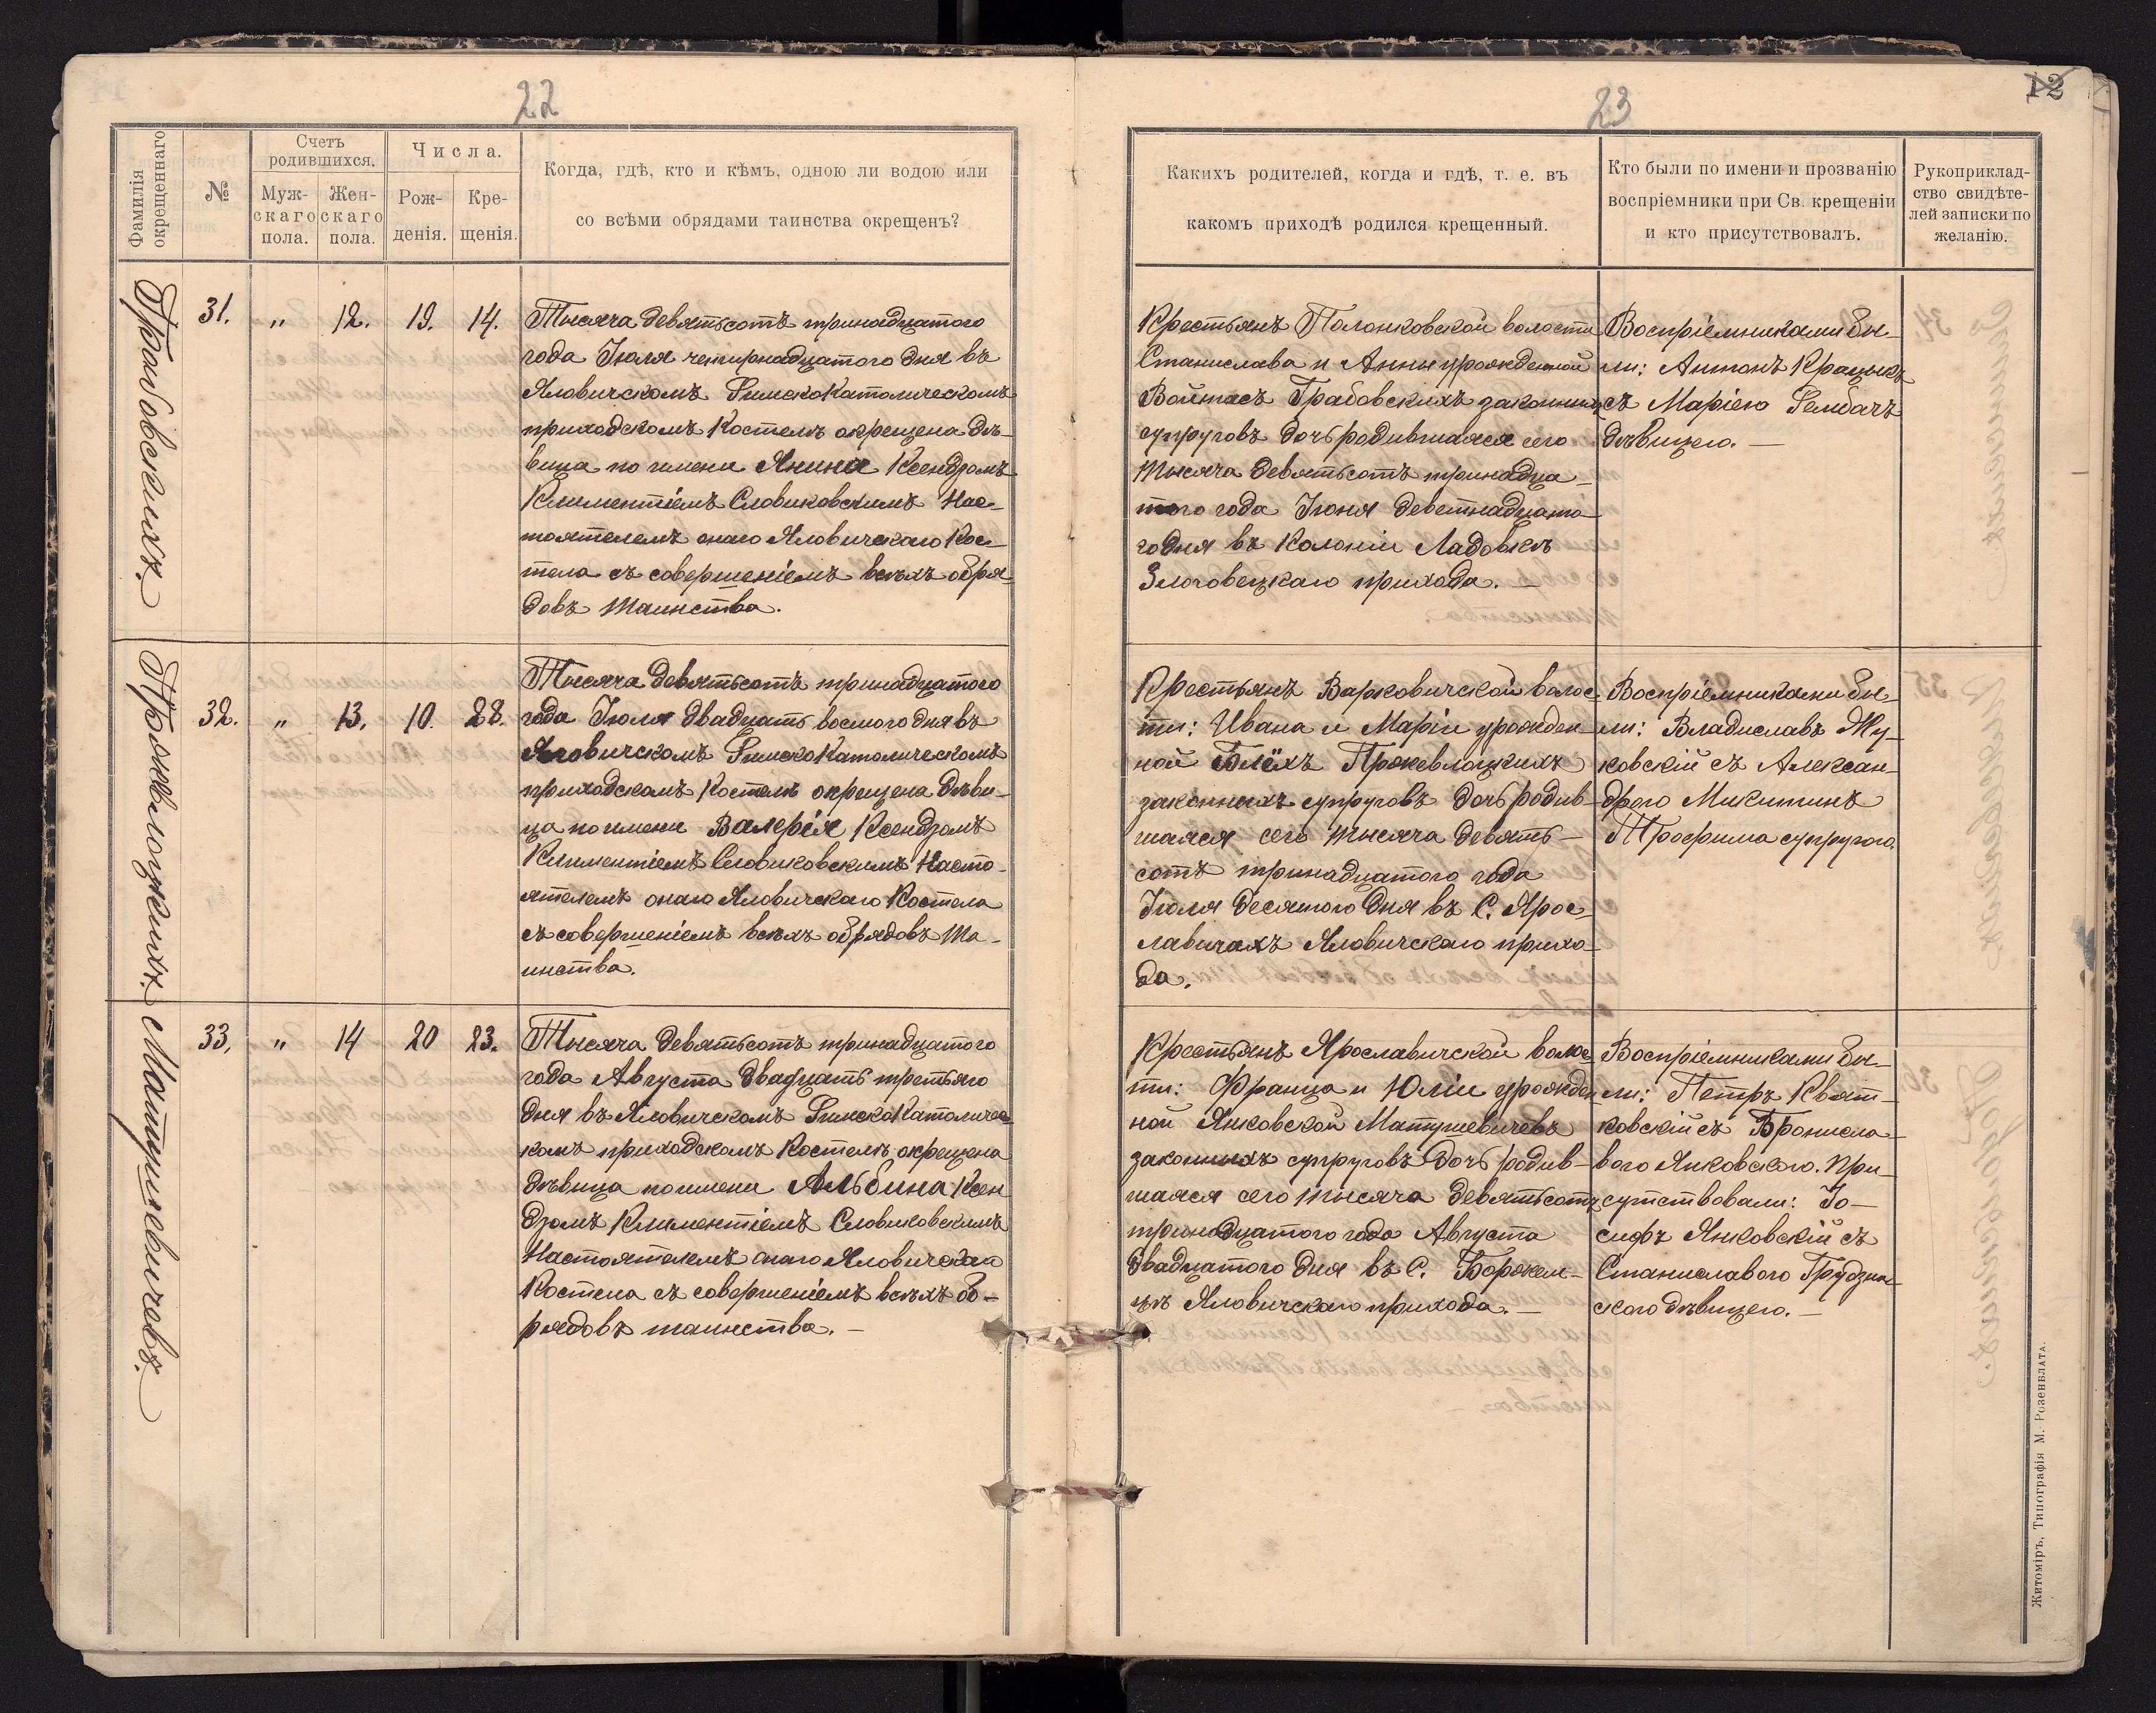 22
Фамилія окрещеннаго
№
Счетъ родившихся.
Муж-
скаго
пола.
Жен-
скаго
пола.
Числа.
Рож-
денія.
Кре-
щенія.
Когда, гдѣ, кто и кѣмъ, одною ли водою или
со всѣми обрядами таинства окрещенъ?
Грабовскихъ.
31. " 12. 19. 14.
Тысяча девятьсотъ тринадцатого
года Іюля четырнадцатого дня въ
Яловичскомъ Римско Католическомъ
приходскомъ Костелѣ окрещена дѣ-
вица по имени Янина Ксендзомъ
Климентіемъ Словиковскимъ Нас-
тоятелемъ онаго Яловичскаго Кос-
тела съ совершеніемъ всѣхъ обря-
довъ таинства.
Пржевлоцкихъ.
32. " 13. 10. 28.
Тысяча девятьсотъ тринадцатого
года Іюля двадцать восмого дня въ
Яловичскомъ Римско Католическомъ
приходскомъ Костелѣ окрещена дѣви-
ца по имени Валерія Ксендзомъ
Климентіемъ Словиковскимъ Насто-
ятелемъ онаго Яловичскаго Костела
съ совершеніемъ всѣхъ обрядовъ та-
инства.
Матушевичевъ.
33. " 14 20 23.
Тысяча девятьсотъ тринадцатого
года Августа двадцать третьяго
дня въ Яловичскомъ Римско Католичес-
комъ приходскомъ Костелѣ окрещена
дѣвица по имени Альбина Ксен
дзомъ Климентіемъ Словиковскимъ
Настоятелемъ онаго Яловичскаго
Костела съ совершеніемъ всѣхъ об-
рядовъ таинства. —
23
12
Какихъ родителей, когда и гдѣ, т. е. въ
какомъ приходѣ родился крещенный.
Кто были по имени и прозванію
воспріемники при Св. крещеніи
и кто присутствовалъ.
Рукоприклад-
ство свидѣте-
лей записки по
желанію.
Крестьянъ Полонковской волости
Станислава и Анны урожденной
Войтасъ Грабовскихъ законныхъ
супруговъ дочь родившаяся сего
тысяча девятьсотъ тринадца-
того года Іюня деветнадцато-
го дня въ Колоніи Ладовкѣ
Злочовецкаго прихода. —
Воспріемниками бы-
ли: Антонъ
съ Маріею Гембачъ
дѣвицею. —
Крестьянъ Варковичской волос-
ти: Ивана и Маріи урожден-
ной Блёхъ Пржевлоцкихъ
законныхъ супруговъ дочь родив-
шаяся сего тысяча девять-
сотъ тринадцатого года
Іюля десятого дня въ С. Ярос-
лавичахъ Яловичскаго прихо-
да.
Воспріемниками бы-
ли: Владиславъ Жу-
ковскій съ Алексан-
дрою Микитинъ
Трофима супругою.
Крестьянъ Ярославичской волос-
ти: Франца и Юліи урожден
ной Янковской Матушевичевъ
законныхъ супруговъ дочь родив-
шаяся сего тысяча девятьсотъ
тринадцатого года Августа
двадцатого дня въ С. Боржем-
цѣ Яловичскаго прихода. —
Воспріемниками бы-
ли: Петръ Квят-
ковскій съ Брониcла-
вою Янковскою. При-
сутствовали: Іо-
сифъ Янковскій съ
Станиславою Грудзин-
скою дѣвицею. —
Житоміръ, Типографія М. Розенблата.